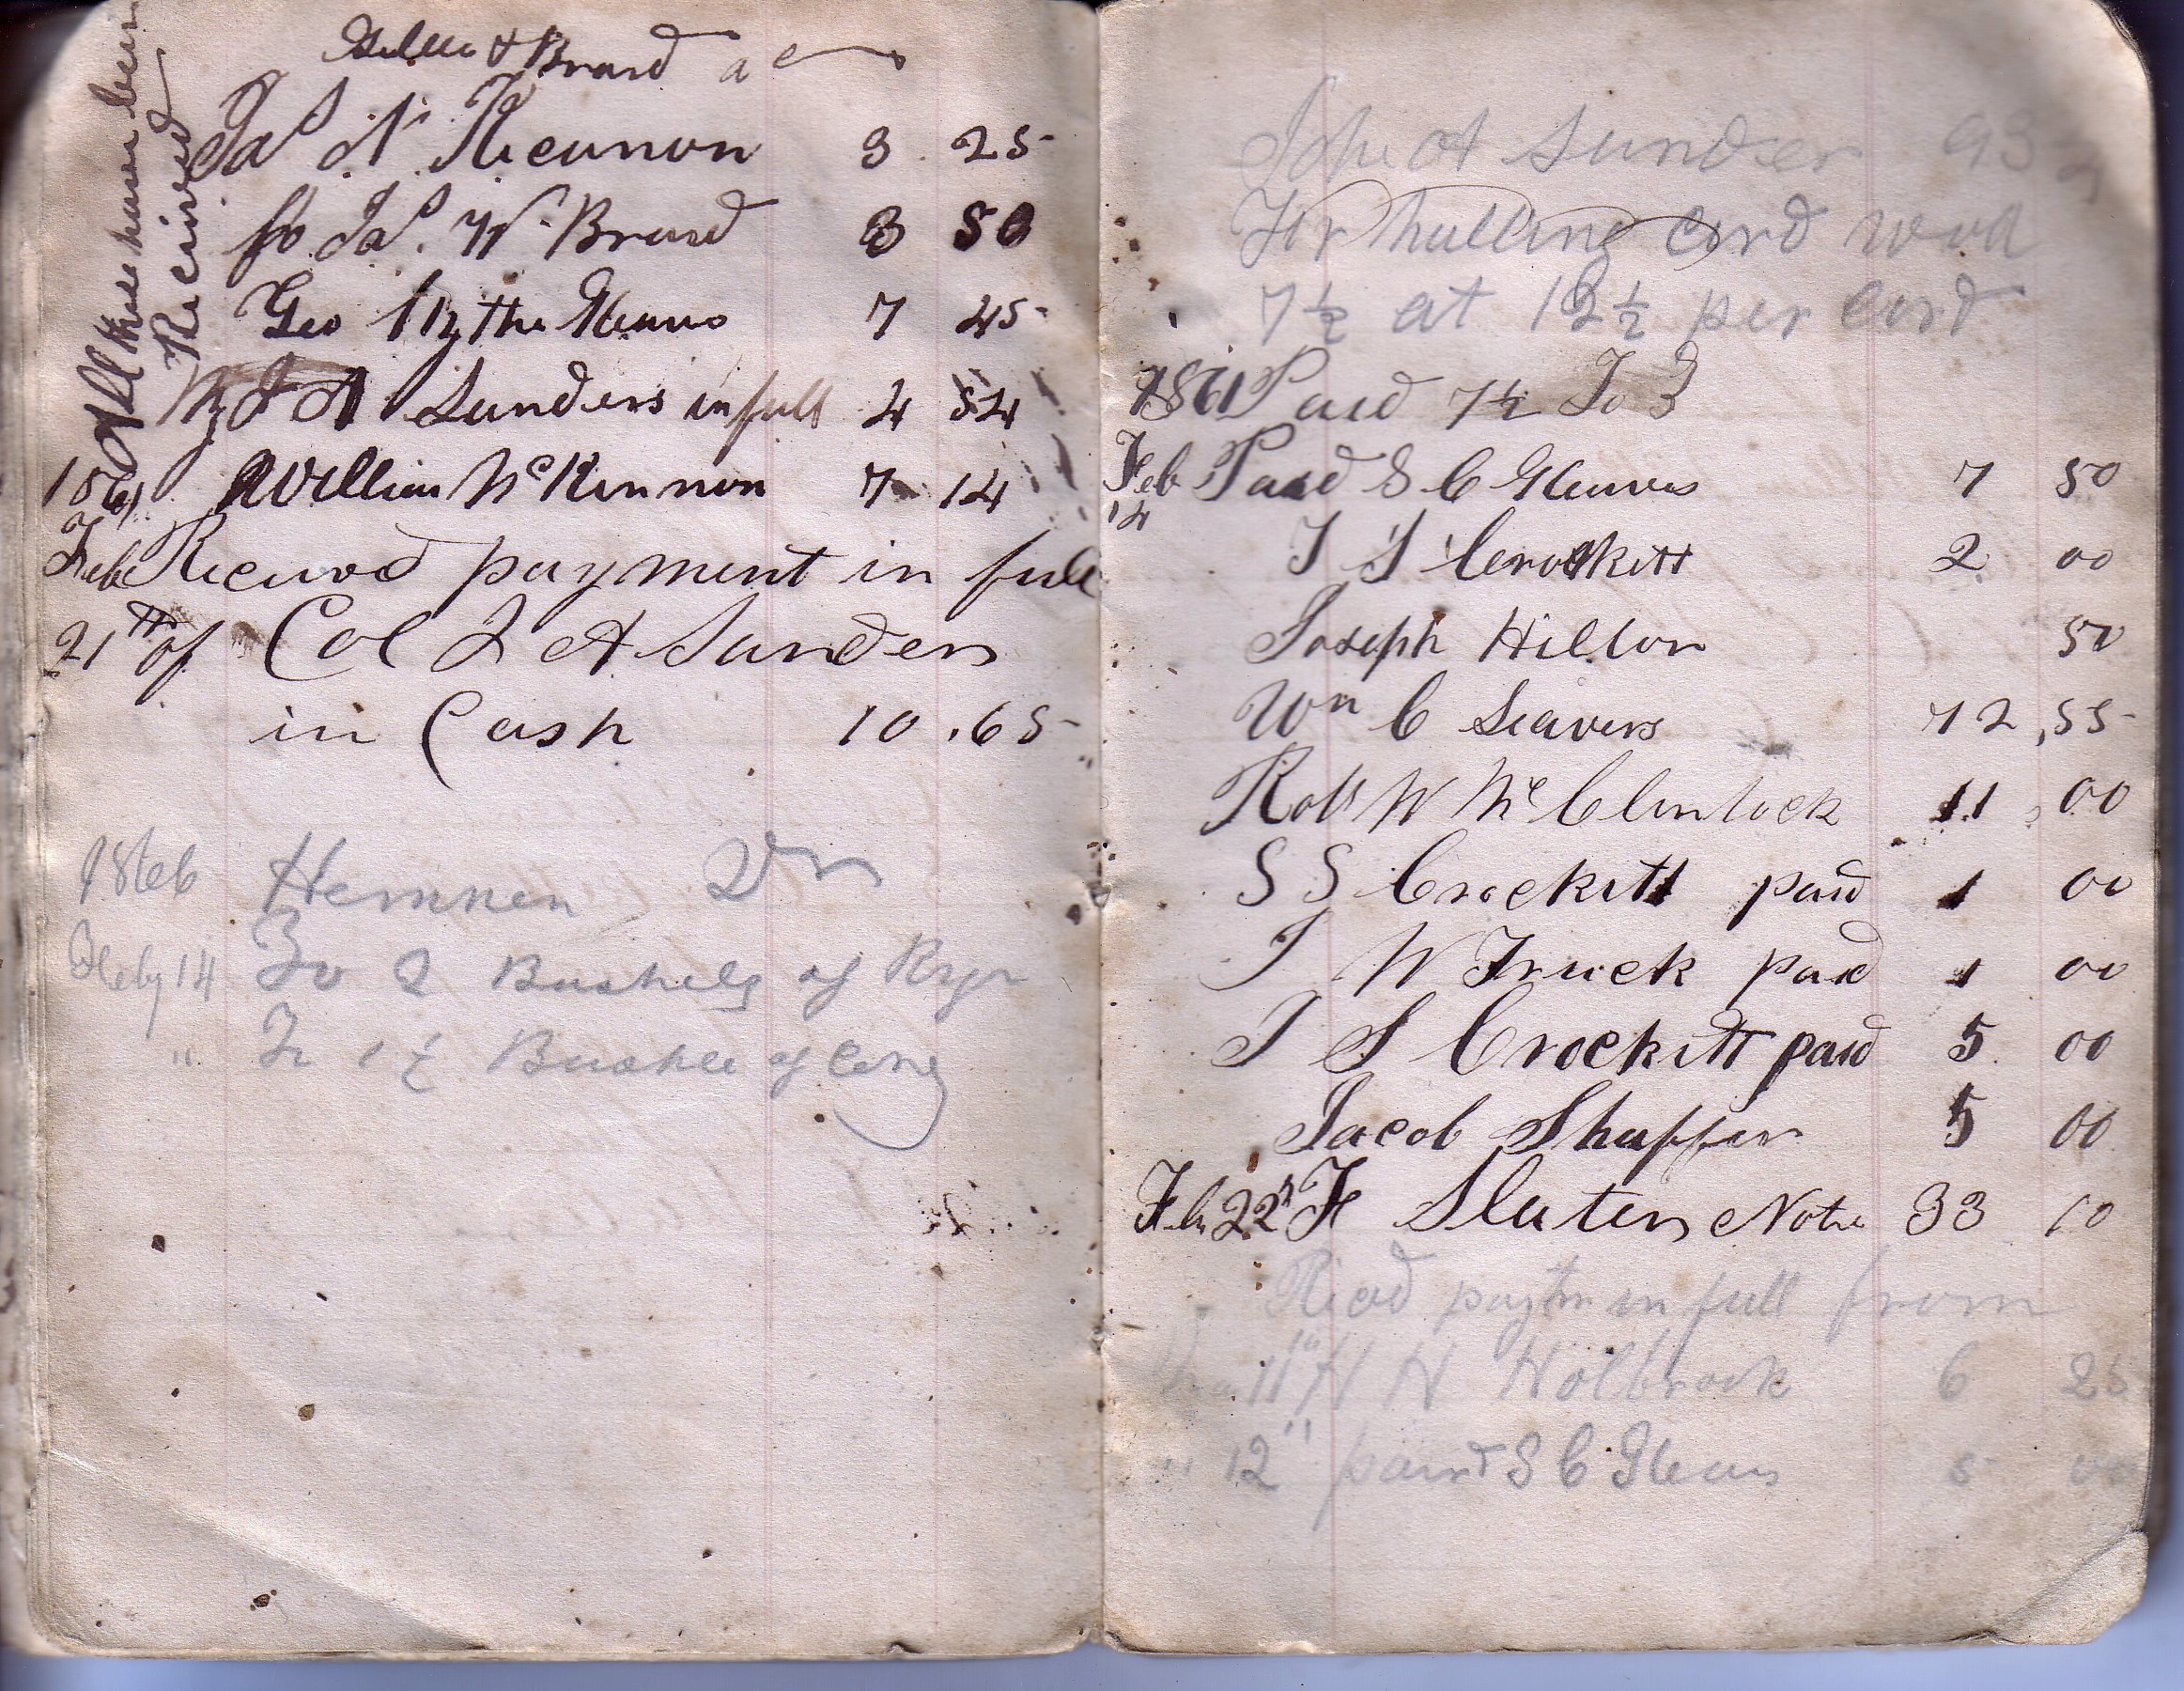 All these have been
Received
& Braird ac
Jas N Kennon 3 25
fo Jas. W. Braird 3 50
Geo Wythe Gleaves 7 45
My J A Sanders in full 4 54
1861 William McKinnon 7 14
Feb Received payment in full
21st of Col J A Sanders
in Cash 10.65
1866 Hemnen Dr
Feby 14 To 2 Bushels of Rye
" To 1 1/2 Bushel of Corn
John A Sanders 93
For halling cord wood
7 1/2 at 12 1/2 per cord
1861 Paid 7 1/2 To 3
Feb Paid S C Gleaves 7 50
14
J S Crockett 2 00
Joseph Hilton 50
Wm C Seavers 72,55
Robt W McClintock 11,00
S S Crockett paid 1 00
J W Truck paid 1 00
J S Crockett paid 5 00
Jacob Shaffer 5 00
Feb 22d F Slaters Note 33 10
Recd paytm in full from
11th H H Holbrook 6 25
" 12" paid S C Gleaves 5 00